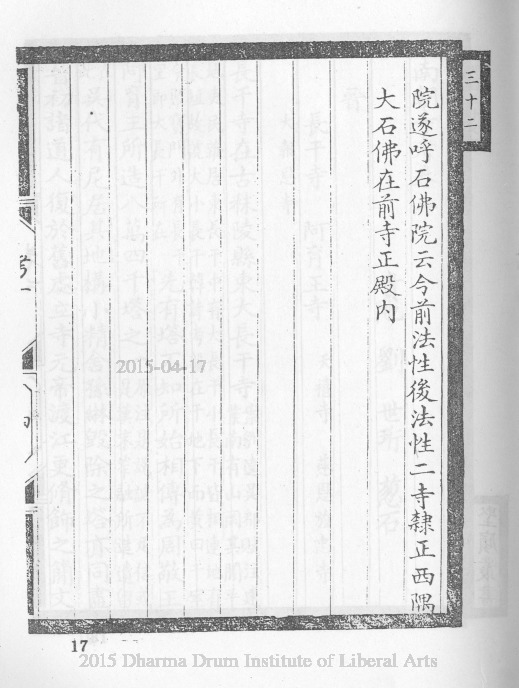 三十二
院遂呼石佛院云今前法性後法性二寺隸正西隅
大石佛在前寺正殿内
考一
2015-04-17
17
2015 Dharma Drum Institute of Liberal Arts